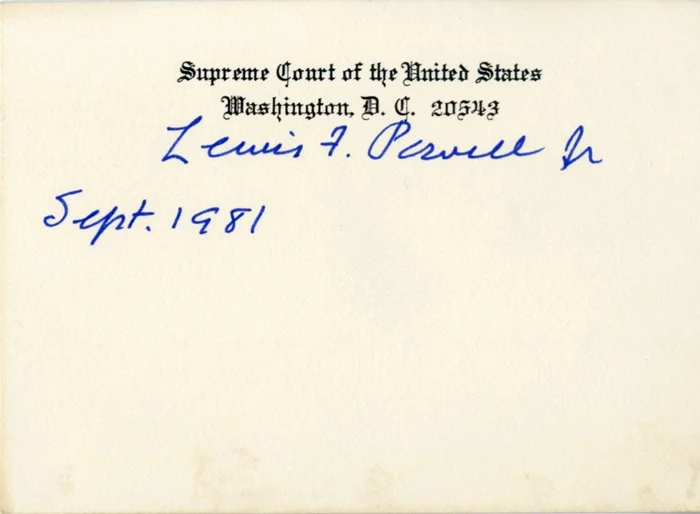 Supreme Court of the United States
Washington, D. C. 20543
Lewis F. Powell Jr
Sept. 1981